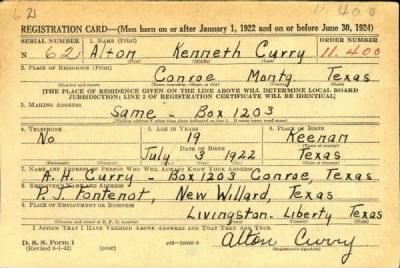 62
11.400
REGISTRATION CARD—(Men born on or after January 1, 1922 and on or before June 30, 1924)
SERIAL NUMBER 1. NAME (Print) ORDER NUMBER
N 62 Alton Kenneth Curry 11.400
(First) (Middle) (Last)
2. PLACE OF RESIDENCE (Print)
Conroe Montg. Texas
(Number and street) (Town, township, village, or city) (County) (State)
[THE PLACE OF RESIDENCE GIVEN ON THE LINE ABOVE WILL DETERMINE LOCAL BOARD
JURISDICTION; LINE 2 OF REGISTRATION CERTIFICATE WILL BE IDENTICAL]
3. MAILING ADDRESS
Same Box 1203
[Mailing address if other than place indicated on line 2. If same insert word same]
4. TELEPHONE 5. AGE IN YEARS 6. PLACE OF BIRTH
No 19 Keenan
DATE OF BIRTH (Town or county)
July 3 1922 Texas
(Mo.) (Day) (Yr.) (State or country)
7. NAME AND ADDRESS OF PERSON WHO WILL ALWAYS KNOW YOUR ADDRESS
A. H. Curry - Box 1203 Conroe, Texas
8. EMPLOYER'S NAME AND ADDRESS
P. J. Fontenot, New Willard, Texas
9. PLACE OF EMPLOYMENT OR BUSINESS
Livingston - Liberty Texas
(Number and street or R. F. D. number) (Town) (County) (State)
I AFFIRM THAT I HAVE VERIFIED ABOVE ANSWERS AND THAT THEY ARE TRUE.
D. S. S. Form 1
Alton Curry